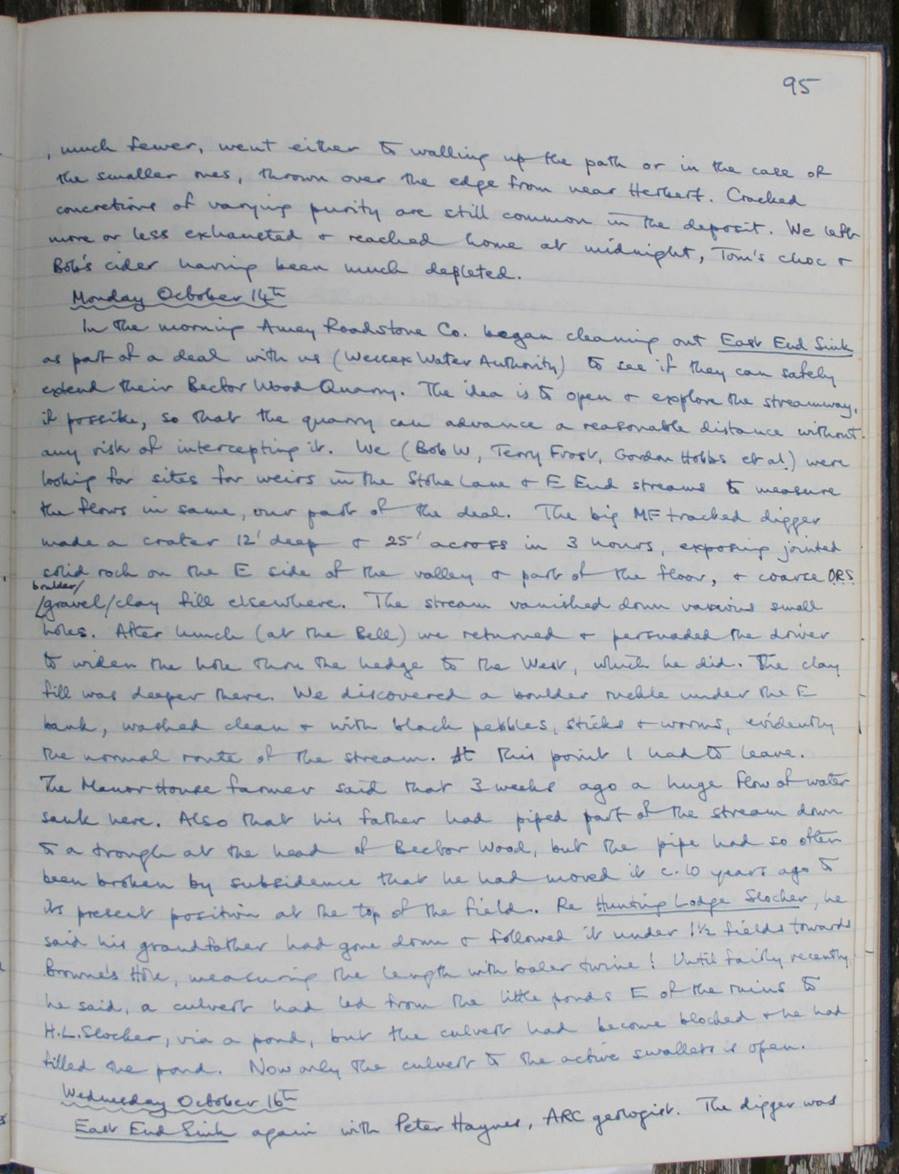 95
, much fewer, went either to walling up the path or in the case of
the smaller ones, thrown over the edge from near Herbert. Cracked
concretions of varying purity are still common in the deposit. We left
more or less exhausted & reached home at midnight, Tom's choc &
Bob's cider having been much depleted.
Monday October 14th
In the morning Amey Roadstone Co. began cleaning out East End Sink
as part of a deal with us (Wessex Water Authority) to see if they can safely
extend their Bector Wood Quarry. The idea is to open & explore the streamway,
if possible, so that the quarry can advance a reasonable distance without
any risk of intercepting it. We (Bob W, Terry Frost, Gordon Hobbs et al.) were
looking for sites for weirs in the Stoke Lane & E End streams to measure
the flows in same, our part of the deal. The big MF tracked digger
made a crater 12' deep & 25' across in 3 hours, exposing jointed
solid rock on the E side of the valley & part of the floor, & coarse ORS
boulder/
/gravel/clay fill elsewhere. The stream vanished down various small
holes. After lunch (at the Bell) we returned & persuaded the driver
to widen the hole thru the hedge to the West, which he did. The clay
fill was deeper there. We discovered a boulder ruckle under the E
bank, washed clean & with black pebbles, sticks & worms, evidently
the normal route of the stream. At this point I had to leave.
The Manor House farmer said that 3 weeks ago a huge flow of water
sank here. Also that his father had piped part of the stream down
to a trough at the head of Bector Wood, but the pipe had so often
been broken by subsidence that he had moved it c. 10 years ago to
its present position at the top of the field. Re Hunting Lodge Slocker, he
said his grandfather had gone down & followed it under 1½ fields towards
Browne's Hole, measuring the length with baler twine! Until fairly recently
he said, a culvert had led from the little ponds E of the ruins to
H.L. Slocker, via a pond, but the culvert had become blocked & he had
filled the pond. Now only the culvert to the active swallets is open.
Wednesday October 16th
East End Sink again with Peter Haynes, ARC geologist. The digger was